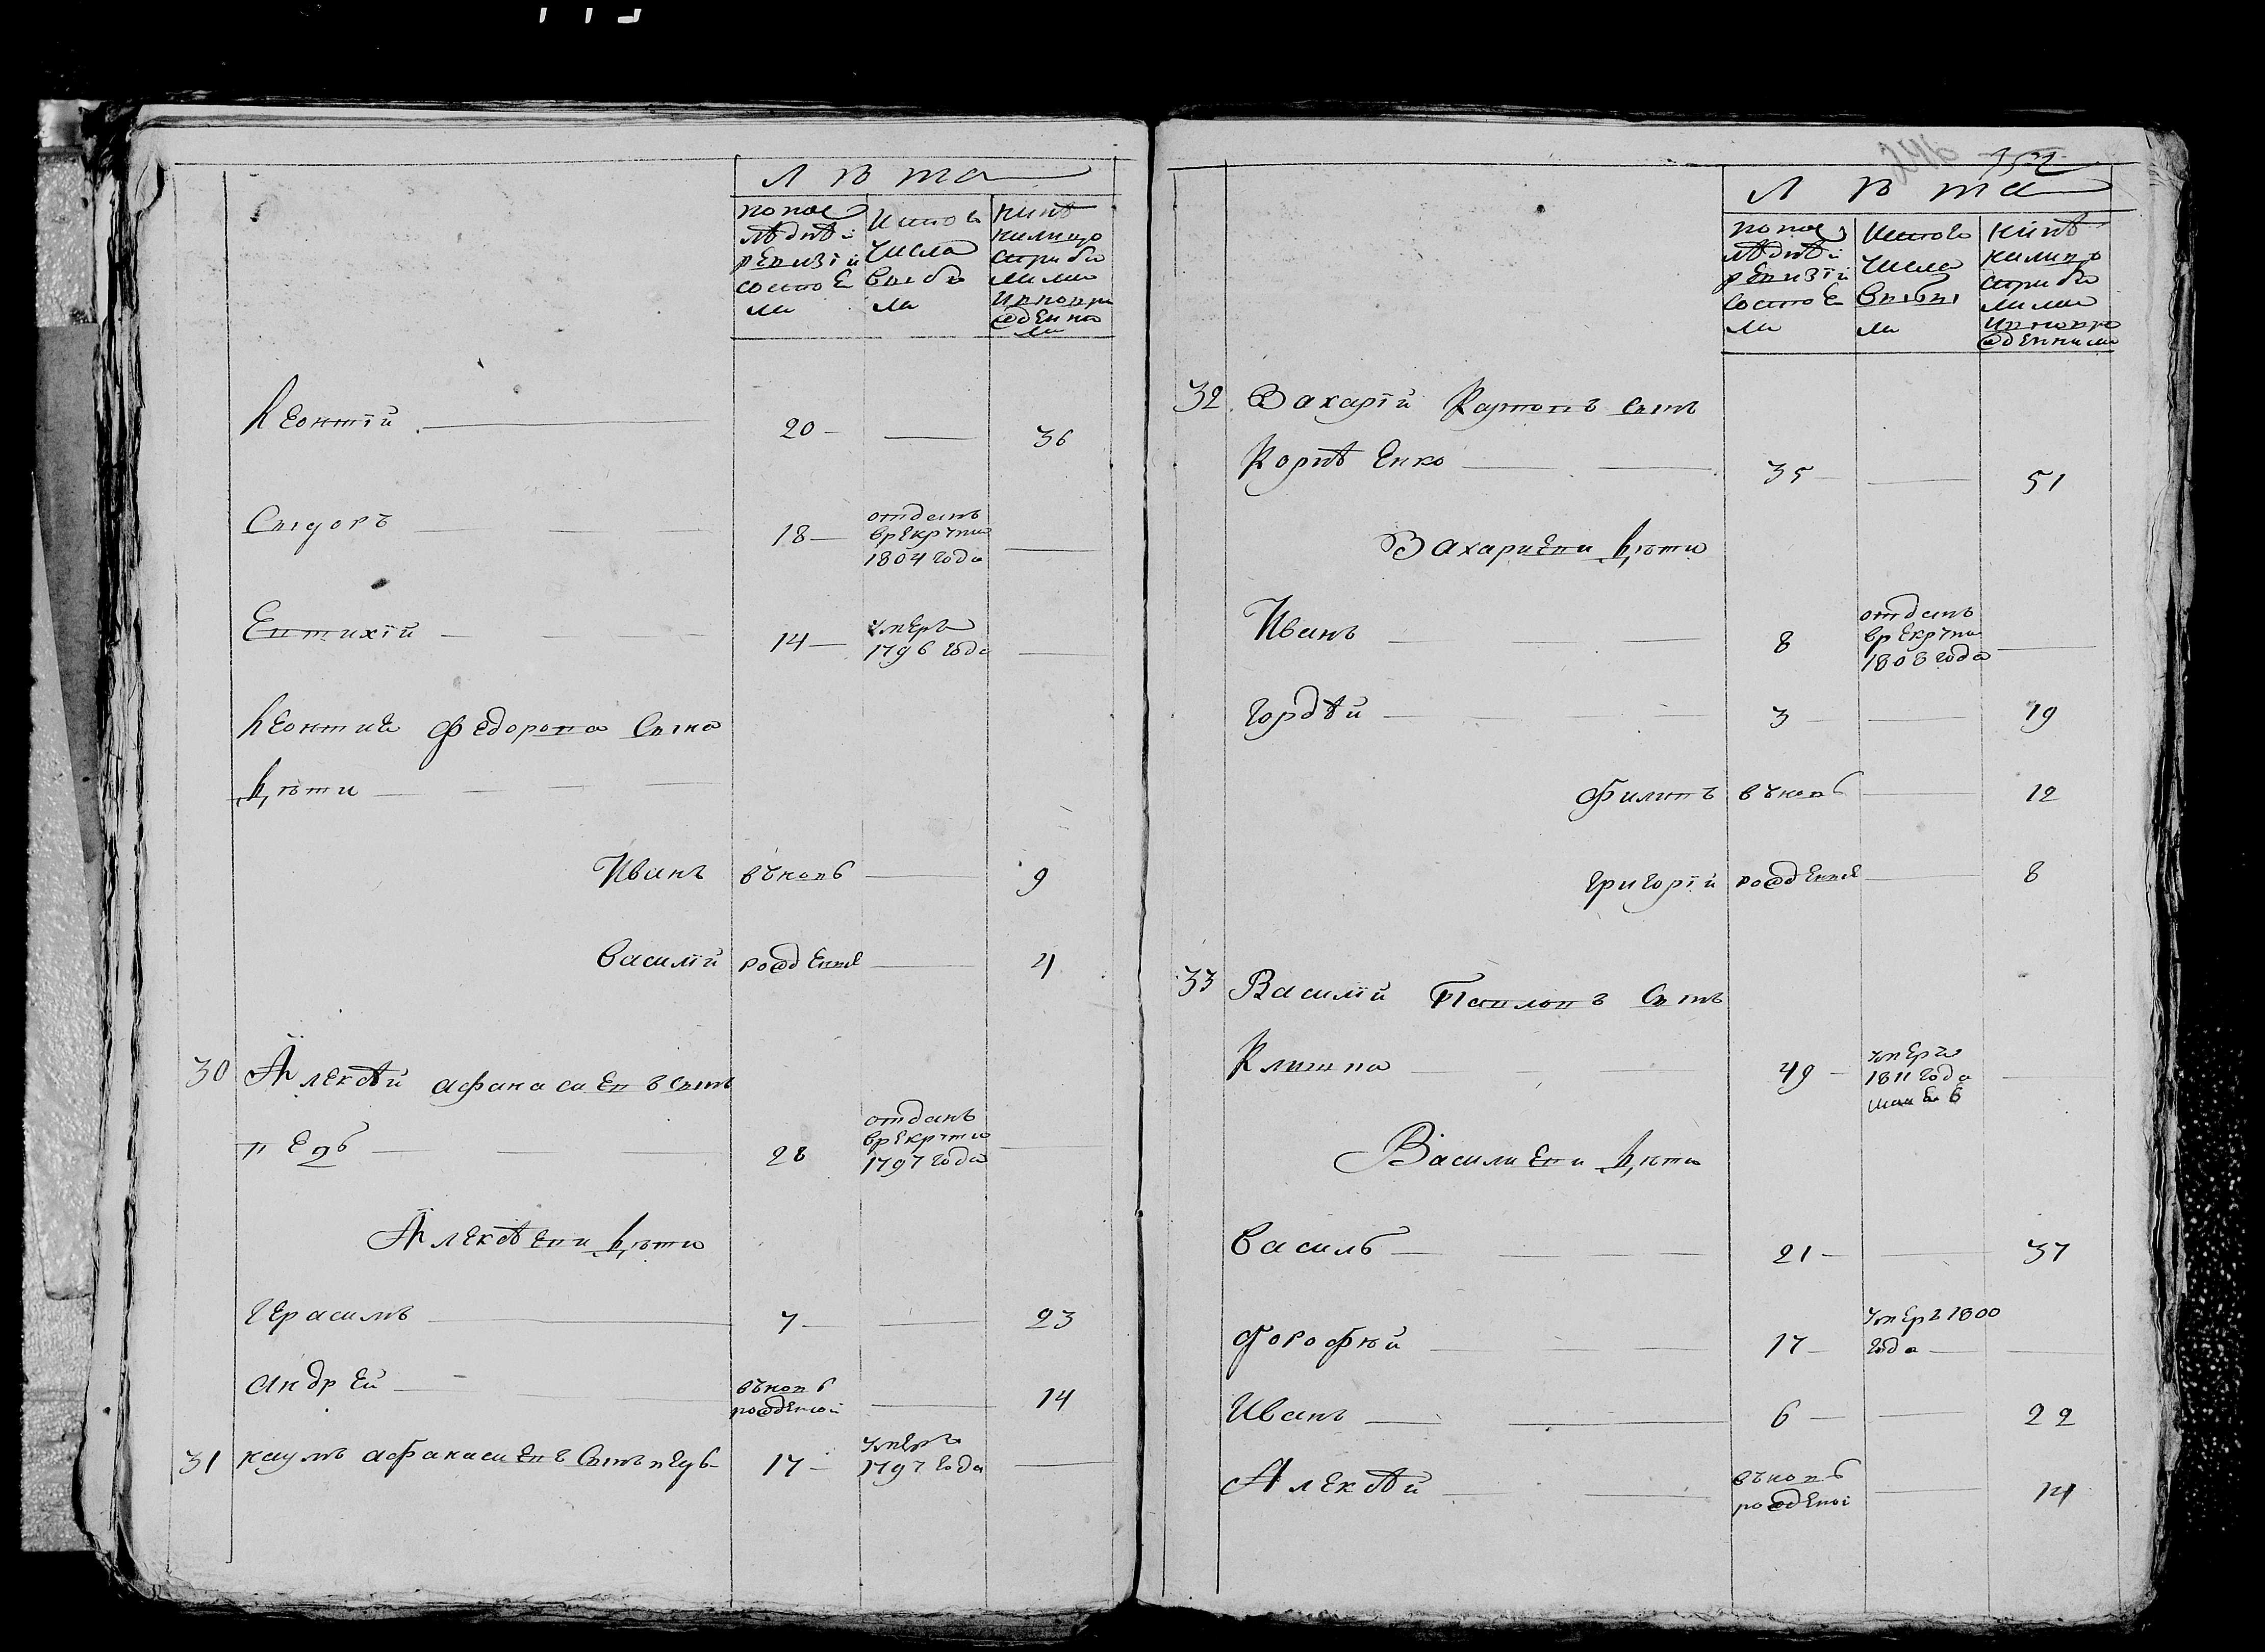 Лѣта
по пос
лѣднѣй
ревизіи
состоя
ли
Исто го
числа
выбы
ли
нинѣ
налицо
сприбы
лыми
ивновро
жденны
ми
Леонтій 20 36
Сыдоръ 18 отданъ
врекруты
1804 года
Евтихій 14 умеръ
1796 года
Леонтия Федорова сына
дѣти
Иванъ вновь 9
Василій рожденые 4
30 Алексѣй афанасиевъ сынъ
отданъ
врекруты
28 1797 года
Алексѣеви дѣти
Герасимъ 7 23
андрей вновь
рожденой 14
31 наумъ афанасиевъ сынъ 17 умеръ
1797 года
246
Лѣта
по пос
лѣднѣй
ревизіи
состоя
ли
Исто го
числа
выбы
ли
нинѣ
налицо
сприбы
лыми
ивновро
жденными
32 Захарій Карповъ сынъ
Корнѣенко 35 51
Захариеви дѣти
Иванъ 8 отданъ
врекруты
1808 года
Гордѣй 3 19
Филипъ вновь 12
григорій рожденые 8
33 Василій Павловъ сынъ
49 умеръ
1811 года
Василиеви дѣти
Василь 21 37
Форофѣй 17 умеръ 1800
года
Иванъ 6 22
Алексѣй вновь
рожденой 14